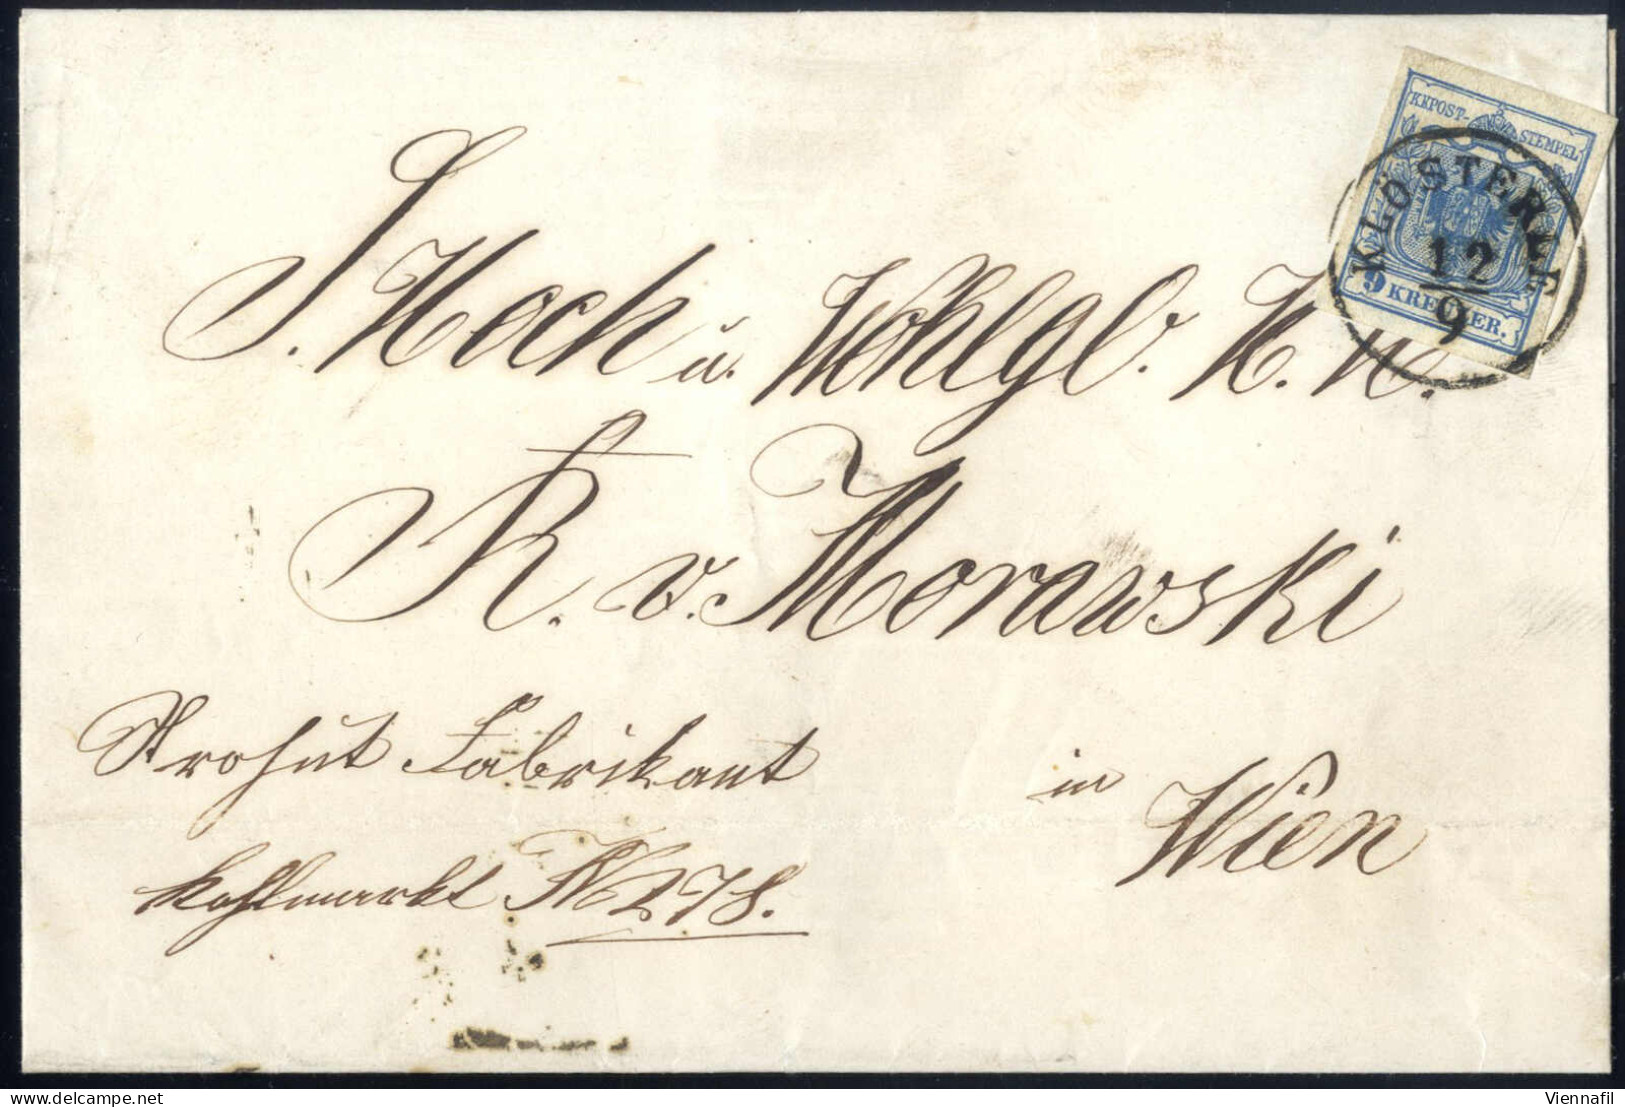 KKPOST-STEMPEL
KLÖSTERLE
12
9
9 KREUZER.
S. Hoch u. Wohlgb. H. H.
R. v. Morawski
Strohut Fabrikant in Wien
Kohlmarkt No 278.
Viennafil